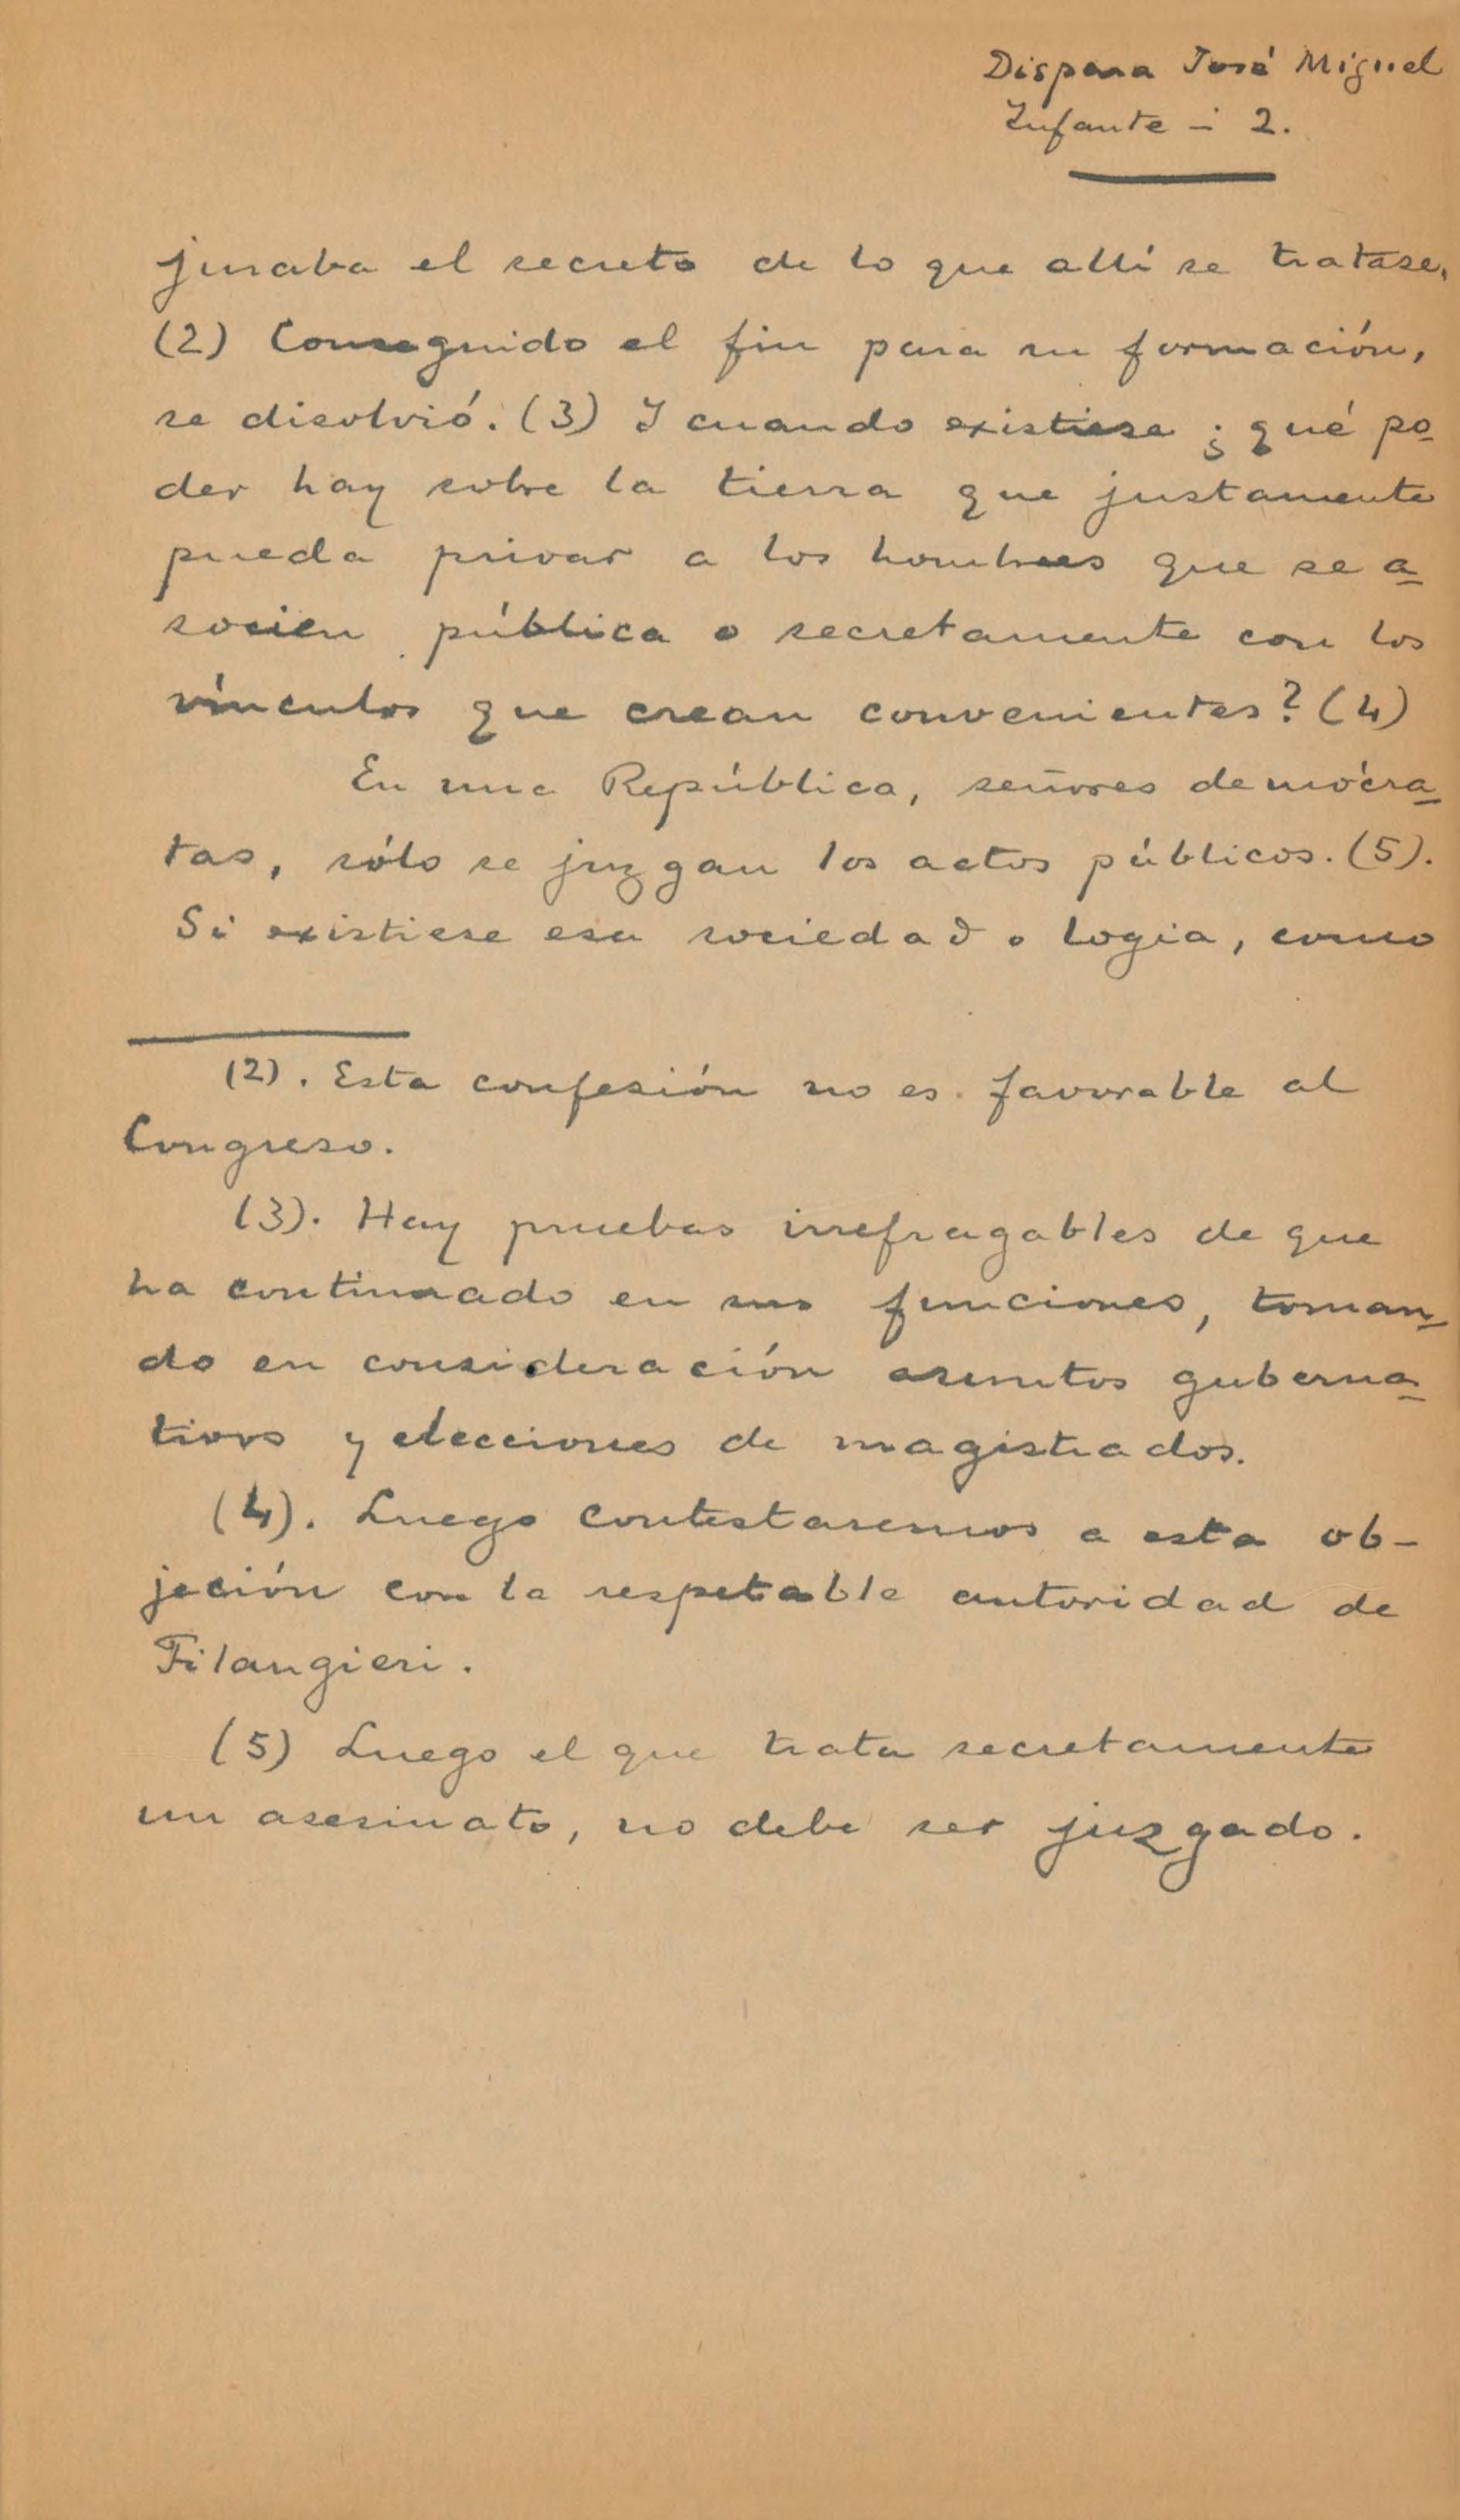 Dispara José Miguel
Infante - 2.
juraba el secreto de lo que allí se tratase.
(2) Conseguido el fin para su formación,
se disolvió. (3) I cuando existiese ¿qué po
der hay sobre la tierra que justamente
pueda privar a los hombres que se a
socien pública o secretamente con los
vínculos que crean convenientes? (4)
En una República, señores demócra
tas, sólo se juzgan los actos públicos. (5).
Si existiese esa sociedad o logia, como
(2). Esta confesión no es favorable al
Congreso.
(3). Hay pruebas irrefragables de que
ha continuado en sus funciones, toman
do en consideración asuntos guberna
tivos y elecciones de magistrados.
(4). Luego contestaremos a esta ob-
jeción con la respetable autoridad de
Filangieri.
(5) Luego el que trata secretamente
un asesinato, no debe ser juzgado.